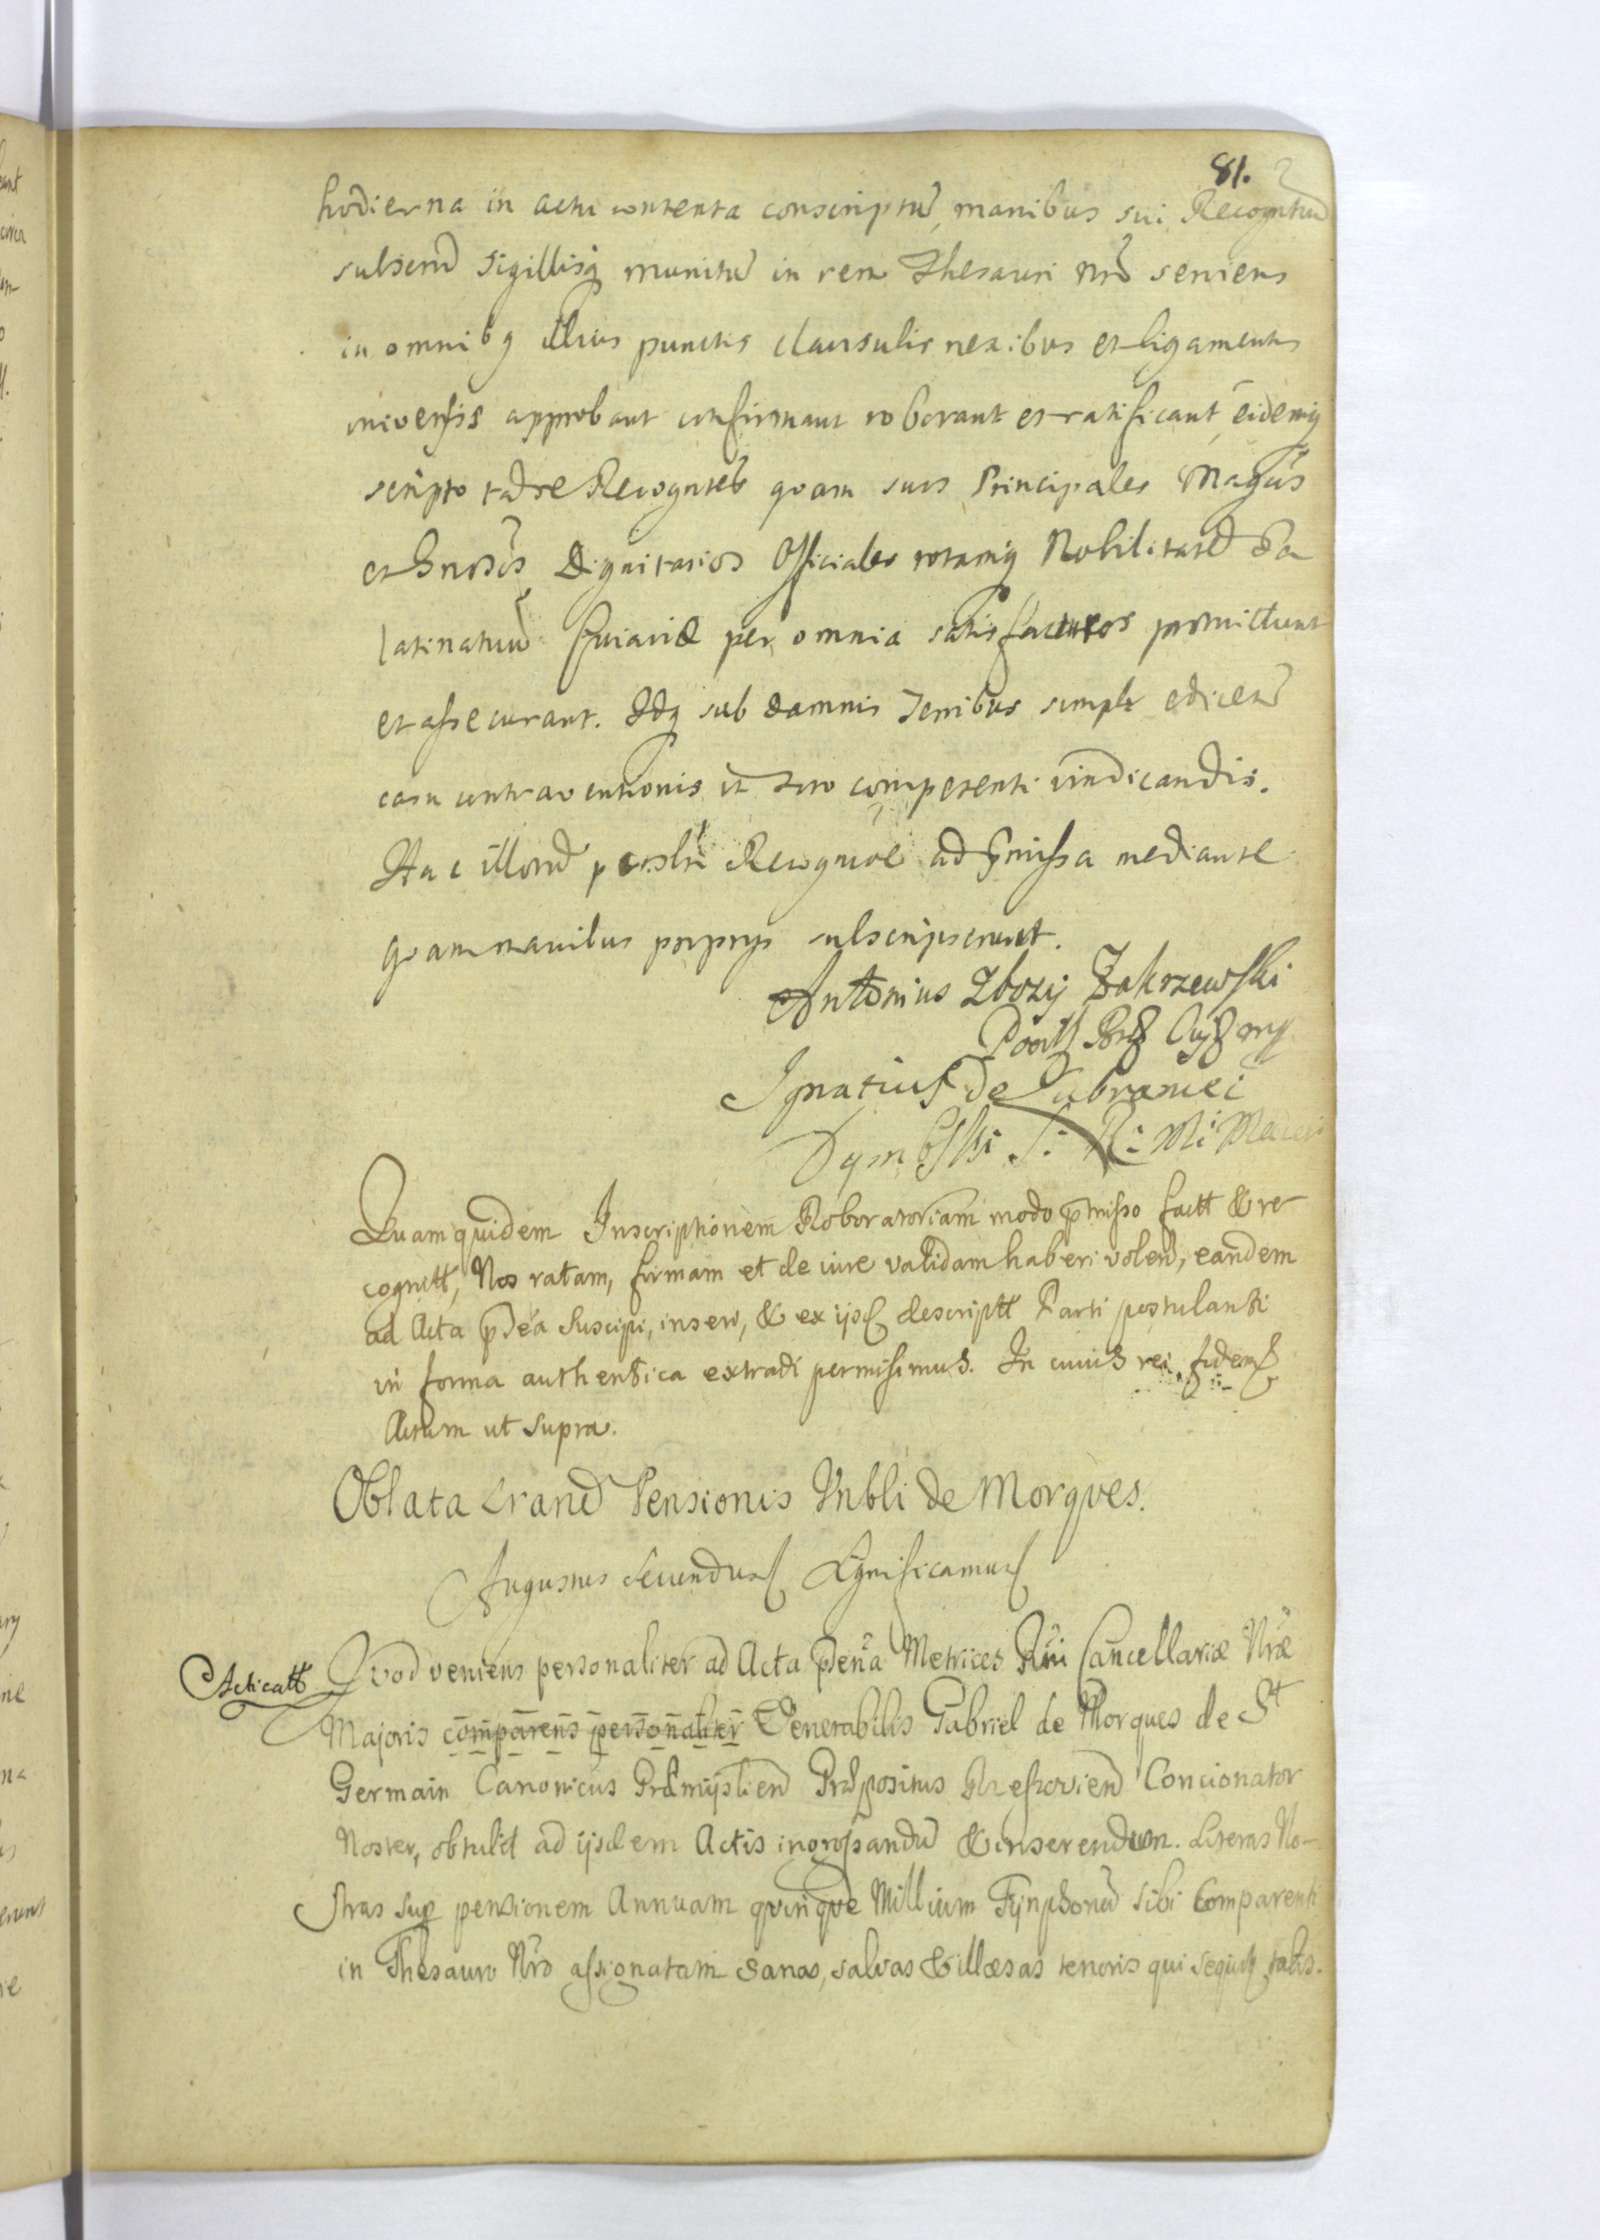 81.
hodierna in actu contenta conscriptũ, manibus sui Recognitũ
subscrip̃ sigillisq munitũ in rem Thesauri Nrĩ serviens
in omnibq illius punctis clausulis nexibus et ligamentis
universis approbant confirmant roborant et ratificant, eidemq
scripto tad se Recognteb quam suos Principales Magcos
et Gnosos Dignitarios Officiales totamq Nobilitatẽ Pa
latinatuũ Cuiaviæ per omnia satisfacturos promittunt
et assecurant. Idq sub damnis Terribus simplr edicen̄
casu contraventionis in Foro competenti vindicandis.
Hac illorũ persõli Recognõe ad p̃missa mediante
quam manibus proprys subscripserunt.
Antonius Zbozy Zakrzewski
Ignatius de Lubraniec
Dymbski S: R: M:
Quam quidem Inscriptionem Roboratoriam modo p̃misso factt & re
cogntt, Nos ratam, firmam et de iure validam haberi volen̄, eandem
ad Acta p̃dca suscipi, inseri, & ex ijsd descriptt Parti postulanti
in forma authentica extradi permisimus. In cuius rei fidem
Actum ut supra.
Oblata Lrarũ Pensionis Vnbli de Morques.
Augustus Secundus Significamus
Acticatt
Quod veniens personaliter ad Acta p̃dena Metrices Rni Cancellariæ Nræ
Majoris comparens personaliter Venerabilis Gabriel de Morques de St
Germain Canonicus Præmyslien̄ Præpositus Rzeszovien̄ Concionator
Noster, obtulit ad ijsdem Actis ingrossandũ & inserendum. Literas No-
stras sup pensionem Annuam quinque Millium Tynphonũ sibi Comparenti
in Thesauro Nro assignatam sanas, salvas & illæsas tenoris qui sequitr talis.